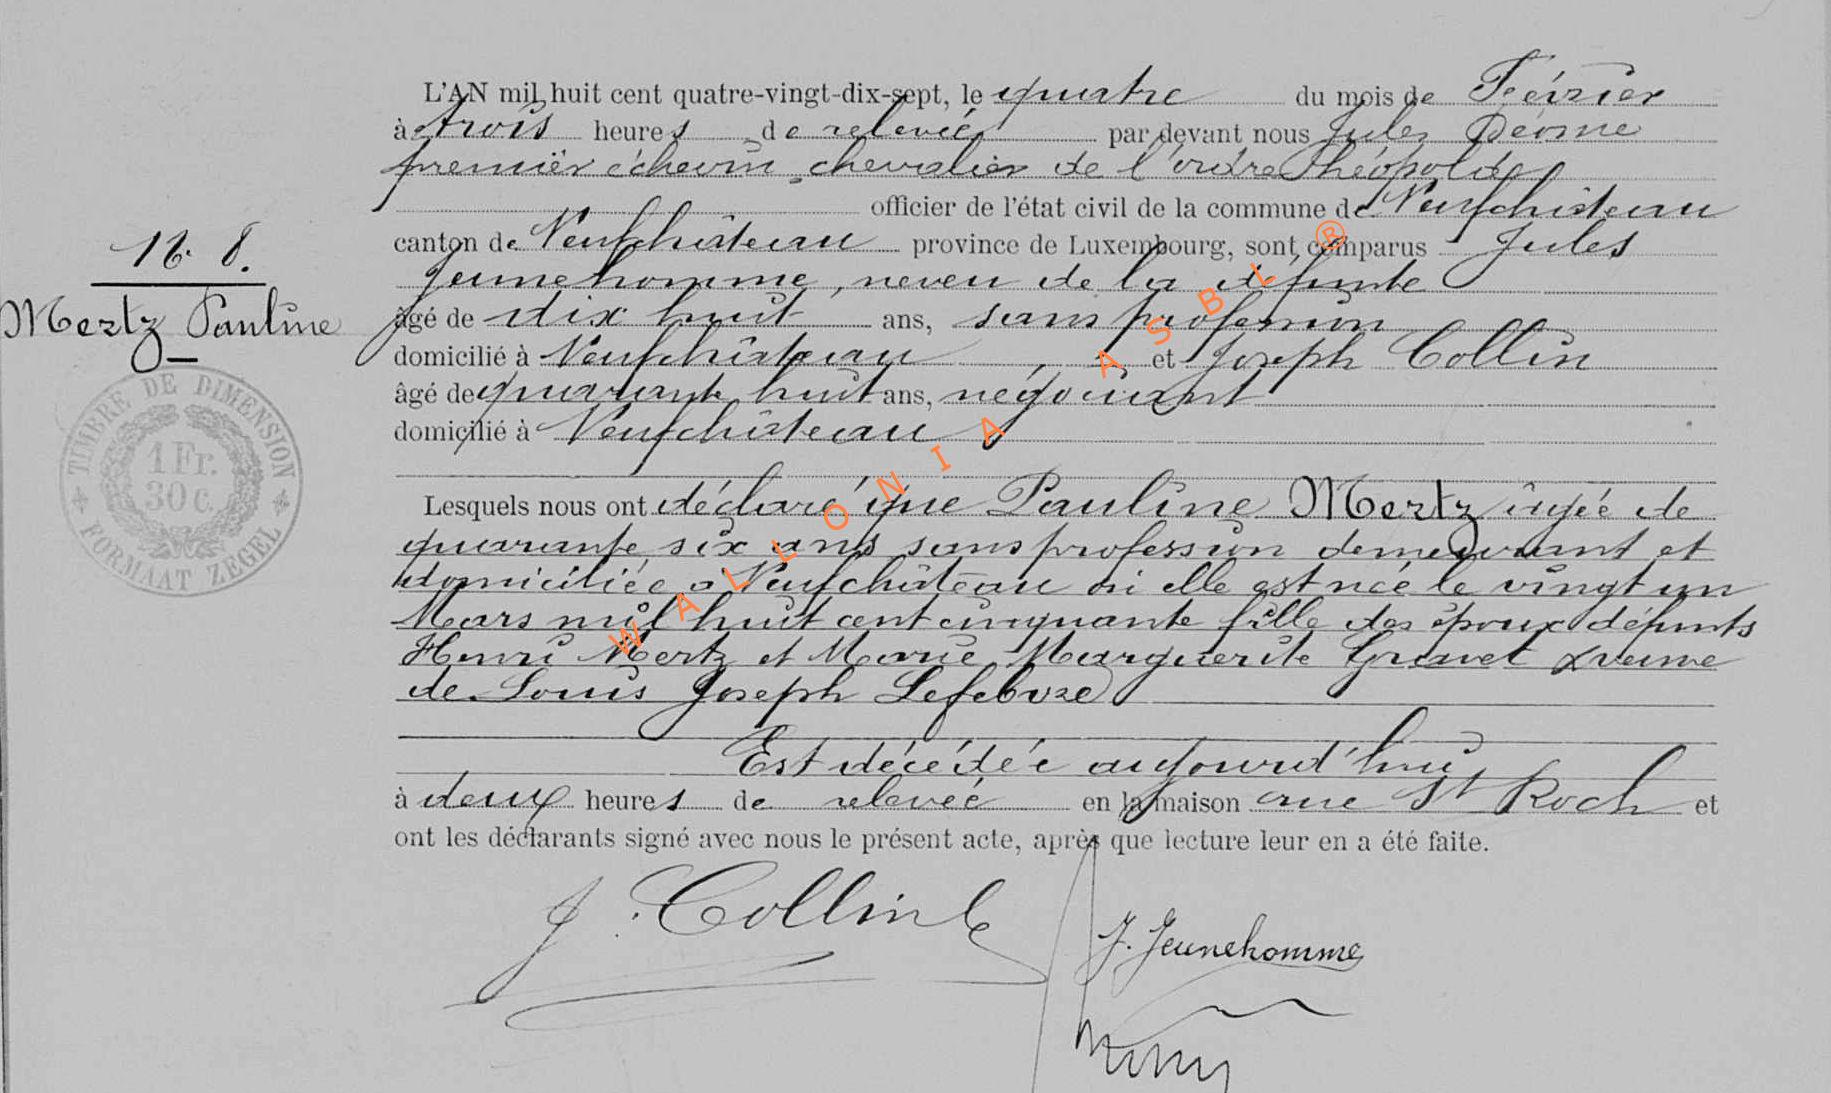 L'AN mil huit cent quatre-vingt-dix-sept, le quatre du mois de Février
à trois heures de relevée par devant nous Jules
premier échevin, chevalier de l'ordre Léopold
officier de l'état civil de la commune de Neufchâteau
canton de Neufchâteau province de Luxembourg, sont comparus Jules
Jeunehomme, neveu de la défunte
âgé de dix huit ans, sans profession
domicilié à Neufchâteau et Joseph Collin
âgé de quarante huit ans, négociant
domicilié à Neufchâteau
N° 8.
Mertz Pauline
TIMBRE DE DIMENSION
1 Fr.
30 c.
FORMAAT ZEGEL
Lesquels nous ont déclaré que Pauline Mertz âgée de
quarante six ans sans profession demeurant et
domiciliée à Neufchâteau où elle est née le vingt un
Mars mil huit cent cinquante fille des époux défunts
Henri Mertz et Marie Marguerite Gravet veuve
de Louis Joseph Lefebvre
Est décédée aujourd'hui
à deux heures de relevée en la maison rue St Roch et
ont les déclarants signé avec nous le présent acte, après que lecture leur en a été faite.
J. Collin
J. Jeunehomme
WALLONIA ASBL ®